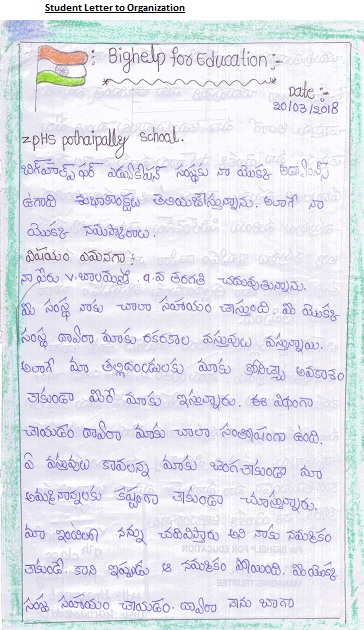 Student Letter to Organization
: Bighelp for Education :-
Date :-
20/03/2018
ZPHS pothaipally school.
బిగ్ హెల్ప్ ఫర్ ఎడ్యుకేషన్ సంస్థకు నా యొక్క అడ్వాన్స్
ఉగాది శుభాకాంక్షలు తెలియజేస్తున్నాను. అలాగే నా
యొక్క నమస్కారాలు.
విషయం ఏమనగా :
నా పేరు V. 9.వ తరగతి చదువుతున్నాను.
మీ సంస్థ నాకు చాలా సహాయం చేస్తుంది. మీ యొక్క
సంస్థ ద్వారా మాకు రకరకాల వస్తువులు వస్తున్నాయి.
అలాగే మా తల్లిదండ్రులకు మాకు కోరిచ్చే అవకాశం
లేకుండా మీరే మాకు ఇస్తున్నారు. ఈ విధంగా
చేయడం ద్వారా మాకు చాలా సంతోషంగా ఉంది.
ఏ వస్తువులు కావాలన్నా మాకు బెంగలేకుండా మా
అమ్మనాన్నలకు కష్టంగా లేకుండా చూస్తున్నారు.
మా ఇంట్లో నన్ను చదివిస్తారు అని నాకు నమ్మకం
లేకుండే. కాని ఇప్పుడు ఆ నమ్మకం పోయింది. మీ యొక్క
సంస్థ సహాయం చేయడం. ద్వారా నేను బాగా